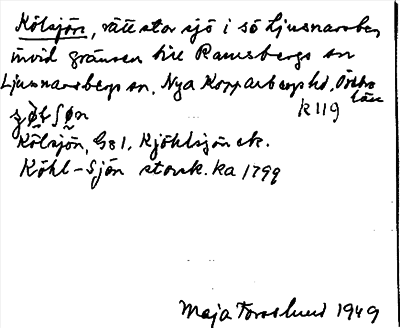 Kölsjön, rätt stor sjö i sö Ljusnarsberg
invid gränsen till Ramsbergs sn
Ljusnarsbergs sn, Nya Kopparbergs hd, Örebro
län
k 119
Kölsjön, Gs 1, Kjöhlsjön ek.
Köhl-Sjön storsk. ka 1799
Maja Forslund 1949